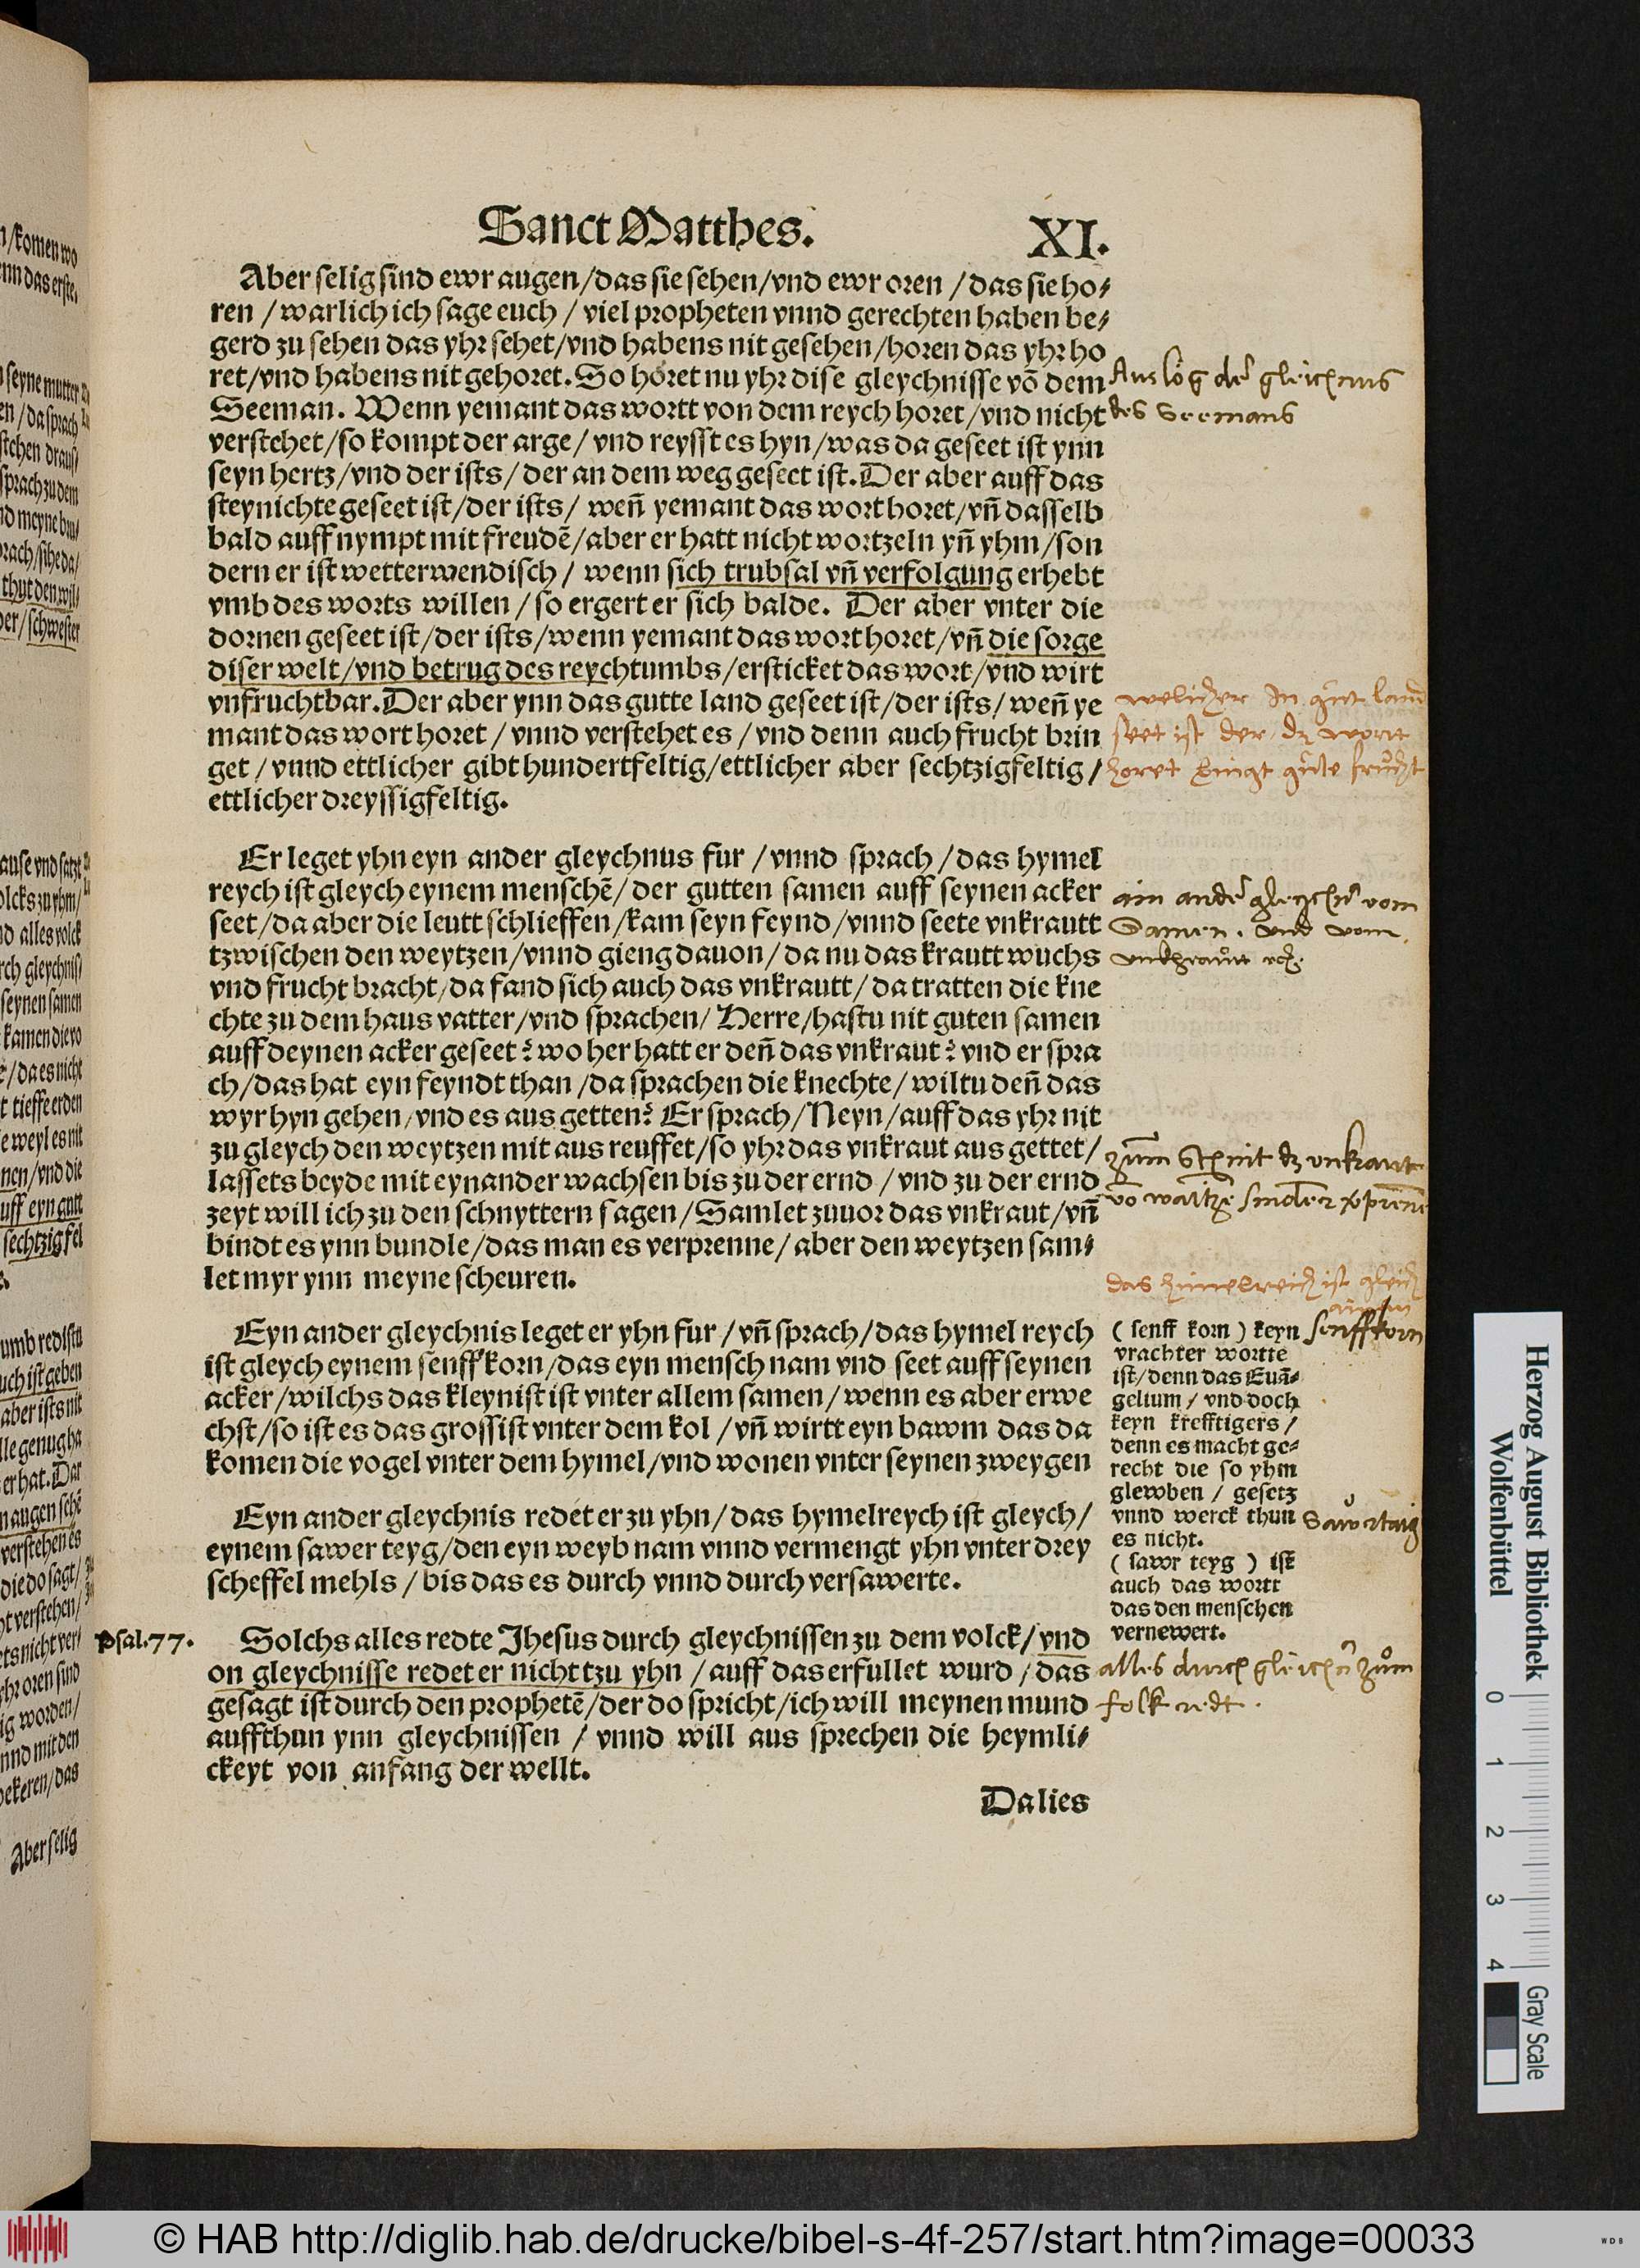 Sanct Matthes.
XI.
Aber selig sind ewr augen/das sie sehen/vnd ewr oren/das sie ho⸗
ren/warlich ich sage euch/viel propheten vnnd gerechten haben be⸗
gerd zu sehen das yhr sehet/vnd habens nit gesehen/horen das yhr ho
ret/vnd habens nit gehoret. So horet nu yhr dise gleychnisse võ dem
Seeman. Wenn yemant das wortt von dem reych horet/vnd nicht
verstehet/so kompt der arge/vnd reysst es hyn/was da geseet ist ynn
seyn hertz/vnd der ists/der an dem weg geseet ist. Der aber auff das
steynichte geseet ist/der ists/weñ yemant das wort horet/vñ dasselb
bald auff nympt mit freudẽ/aber er hatt nicht wortzeln yñ yhm/son
dern er ist wetterwendisch/wenn sich trubsal vñ verfolgung erhebt
vmb des worts willen/so ergert er sich balde. Der aber vnter die
dornen geseet ist/der ists/wenn yemant das wort horet/vñ die sorge
diser welt/vnd betrug des reychtumbs/ersticket das wort/vnd wirt
vnfruchtbar. Der aber ynn das gutte land geseet ist/der ists/weñ ye
mant das wort horet/vnnd verstehet es/vnd denn auch frucht brin
get/vnnd ettlicher gibt hundertfeltig/ettlicher aber sechtzigfeltig/
ettlicher dreyssigfeltig.
des Seemans
Er leget yhn eyn ander gleychnus fur/vnnd sprach/das hymel
reych ist gleych eynem menschẽ/der gutten samen auff seynen acker
seet/da aber die leutt schlieffen/kam seyn feynd/vnnd seete vnkrautt
tzwischen den weytzen/vnnd gieng dauon/da nu das krautt wuchs
vnd frucht bracht/da fand sich auch das vnkrautt/da tratten die kne
chte zu dem haus vatter/vnd sprachen/Herre/hastu nit guten samen
auff deynen acker geseet? wo her hatt er deñ das vnkraut? vnd er spra
ch/das hat eyn feyndt than/da sprachen die knechte/wiltu deñ das
wyr hyn gehen/vnd es aus getten? Er sprach/Neyn/auff das yhr nit
zu gleych den weytzen mit aus reuffet/so yhr das vnkraut aus gettet/
lassets beyde mit eynander wachsen bis zu der ernd/vnd zu der ernd
zeyt will ich zu den schnyttern sagen/Samlet zuuor das vnkraut/vñ
bindt es ynn bundle/das man es verprenne/aber den weytzen sam⸗
let myr ynn meyne scheuren.
Samen. vnd vom
Eyn ander gleychnis leget er yhn fur/vñ sprach/das hymel reych
ist gleych eynem senffkorn/das eyn mensch nam vnd seet auff seynen
acker/wilchs das kleynist ist vnter allem samen/wenn es aber erwe
chst/so ist es das grossist vnter dem kol/vñ wirtt eyn bawm das da
komen die vogel vnter dem hymel/vnd wonen vnter seynen zweygen
senffkorn
(senff korn) keyn
vrachter wortte
ist/denn das Euã⸗
gelium/vnd doch
keyn krefftigers/
denn es macht ge⸗
recht die so yhm
glewben/gesetz
vnnd werck thun
es nicht.
(sawr teyg) ist
auch das wortt
das den menschen
vernewert.
Eyn ander gleychnis redet er zu yhn/das hymelreych ist gleych/
eynem sawer teyg/den eyn weyb nam vnnd vermengt yhn vnter drey
scheffel mehls/bis das es durch vnnd durch versawerte.
Psal.77.
Solchs alles redte Jhesus durch gleychnissen zu dem volck/vnd
on gleychnisse redet er nicht tzu yhn/auff das erfullet wurd/das
gesagt ist durch den prophetẽ/der do spricht/ich will meynen mund
auffthun ynn gleychnissen/vnnd will aus sprechen die heymli⸗
ckeyt von anfang der wellt.
folk redt.
Da Jhes
Herzog August Bibliothek
Wolfenbüttel
0 1 2 3 4
Gray Scale
© HAB http://diglib.hab.de/drucke/bibel-s-4f-257/start.htm?image=00033